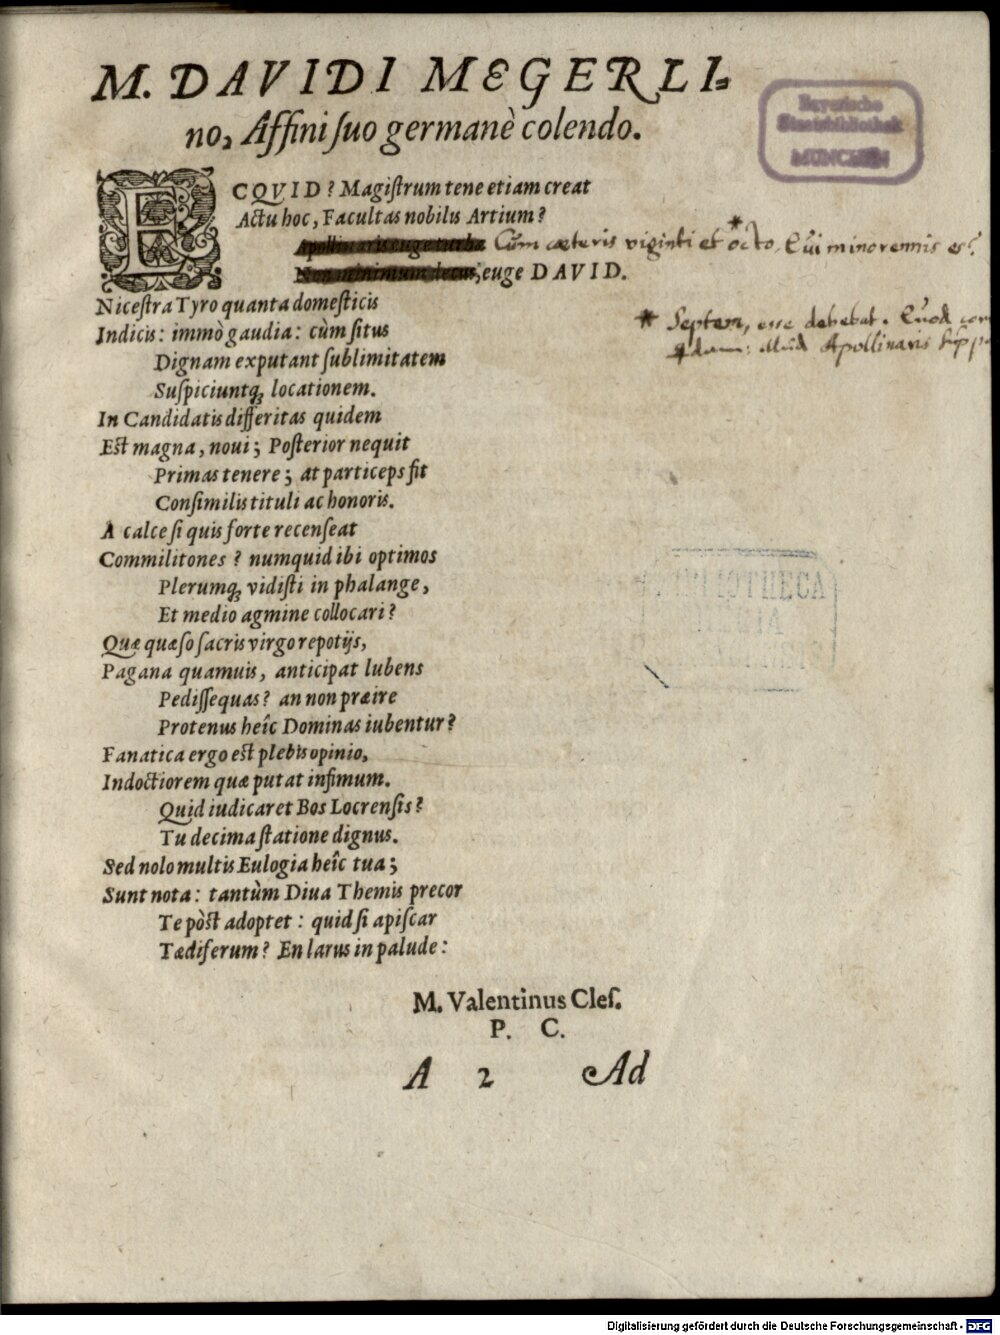 M. DAVIDI MEGERLI-
no, Affini ſuo germanè colendo.
Bayerische
Staatsbibliothek
MÜNCHEN
ECQVID? Magiſtrum tene etiam creat
Actu hoc, Facultas nobilis Artium?
Apollinaris euge turbæ Cùm cæteris viginti et *octo. Qui minorennis es?
Non minimum decus, euge DAVID.
Niceſtra Tyro quanta domeſticis
* Septem, esse debebat. Quod
Indicis: immò gaudia: cùm ſitus
illud Apollinaris
Dignam exputant ſublimitatem
Suſpiciuntq́; locationem.
In Candidatis differitas quidem
Eſt magna, noui; Poſterior nequit
Primas tenere; at particeps fit
Conſimilis tituli ac honoris.
A calce ſi quis forte recenſeat
Commilitones? numquid ibi optimos
Plerumq́; vidiſti in phalange,
Et medio agmine collocari?
BIBLIOTHECA
REGIA
MONACENSIS
Quæ quæſo ſacris virgo repotijs,
Pagana quamuis, anticipat lubens
Pediſſequas? an non præire
Protenus heîc Dominas iubentur?
Fanatica ergo eſt plebis opinio,
Indoctiorem quæ putat infimum.
Quid iudicaret Bos Locrenſis?
Tu decima ſtatione dignus.
Sed nolo multis Eulogia heîc tua;
Sunt nota: tantùm Diua Themis precor
Te pòſt adoptet: quid ſi apiſcar
Tædiferum? En larus in palude:
M. Valentinus Cleſ.
P. C.
A 2 Ad
Digitalisierung gefördert durch die Deutsche Forschungsgemeinschaft - DFG